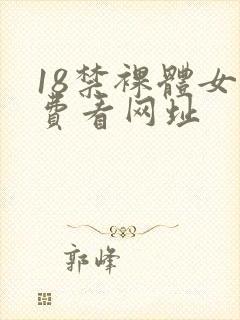 18禁裸體女
費看网址
郭峰